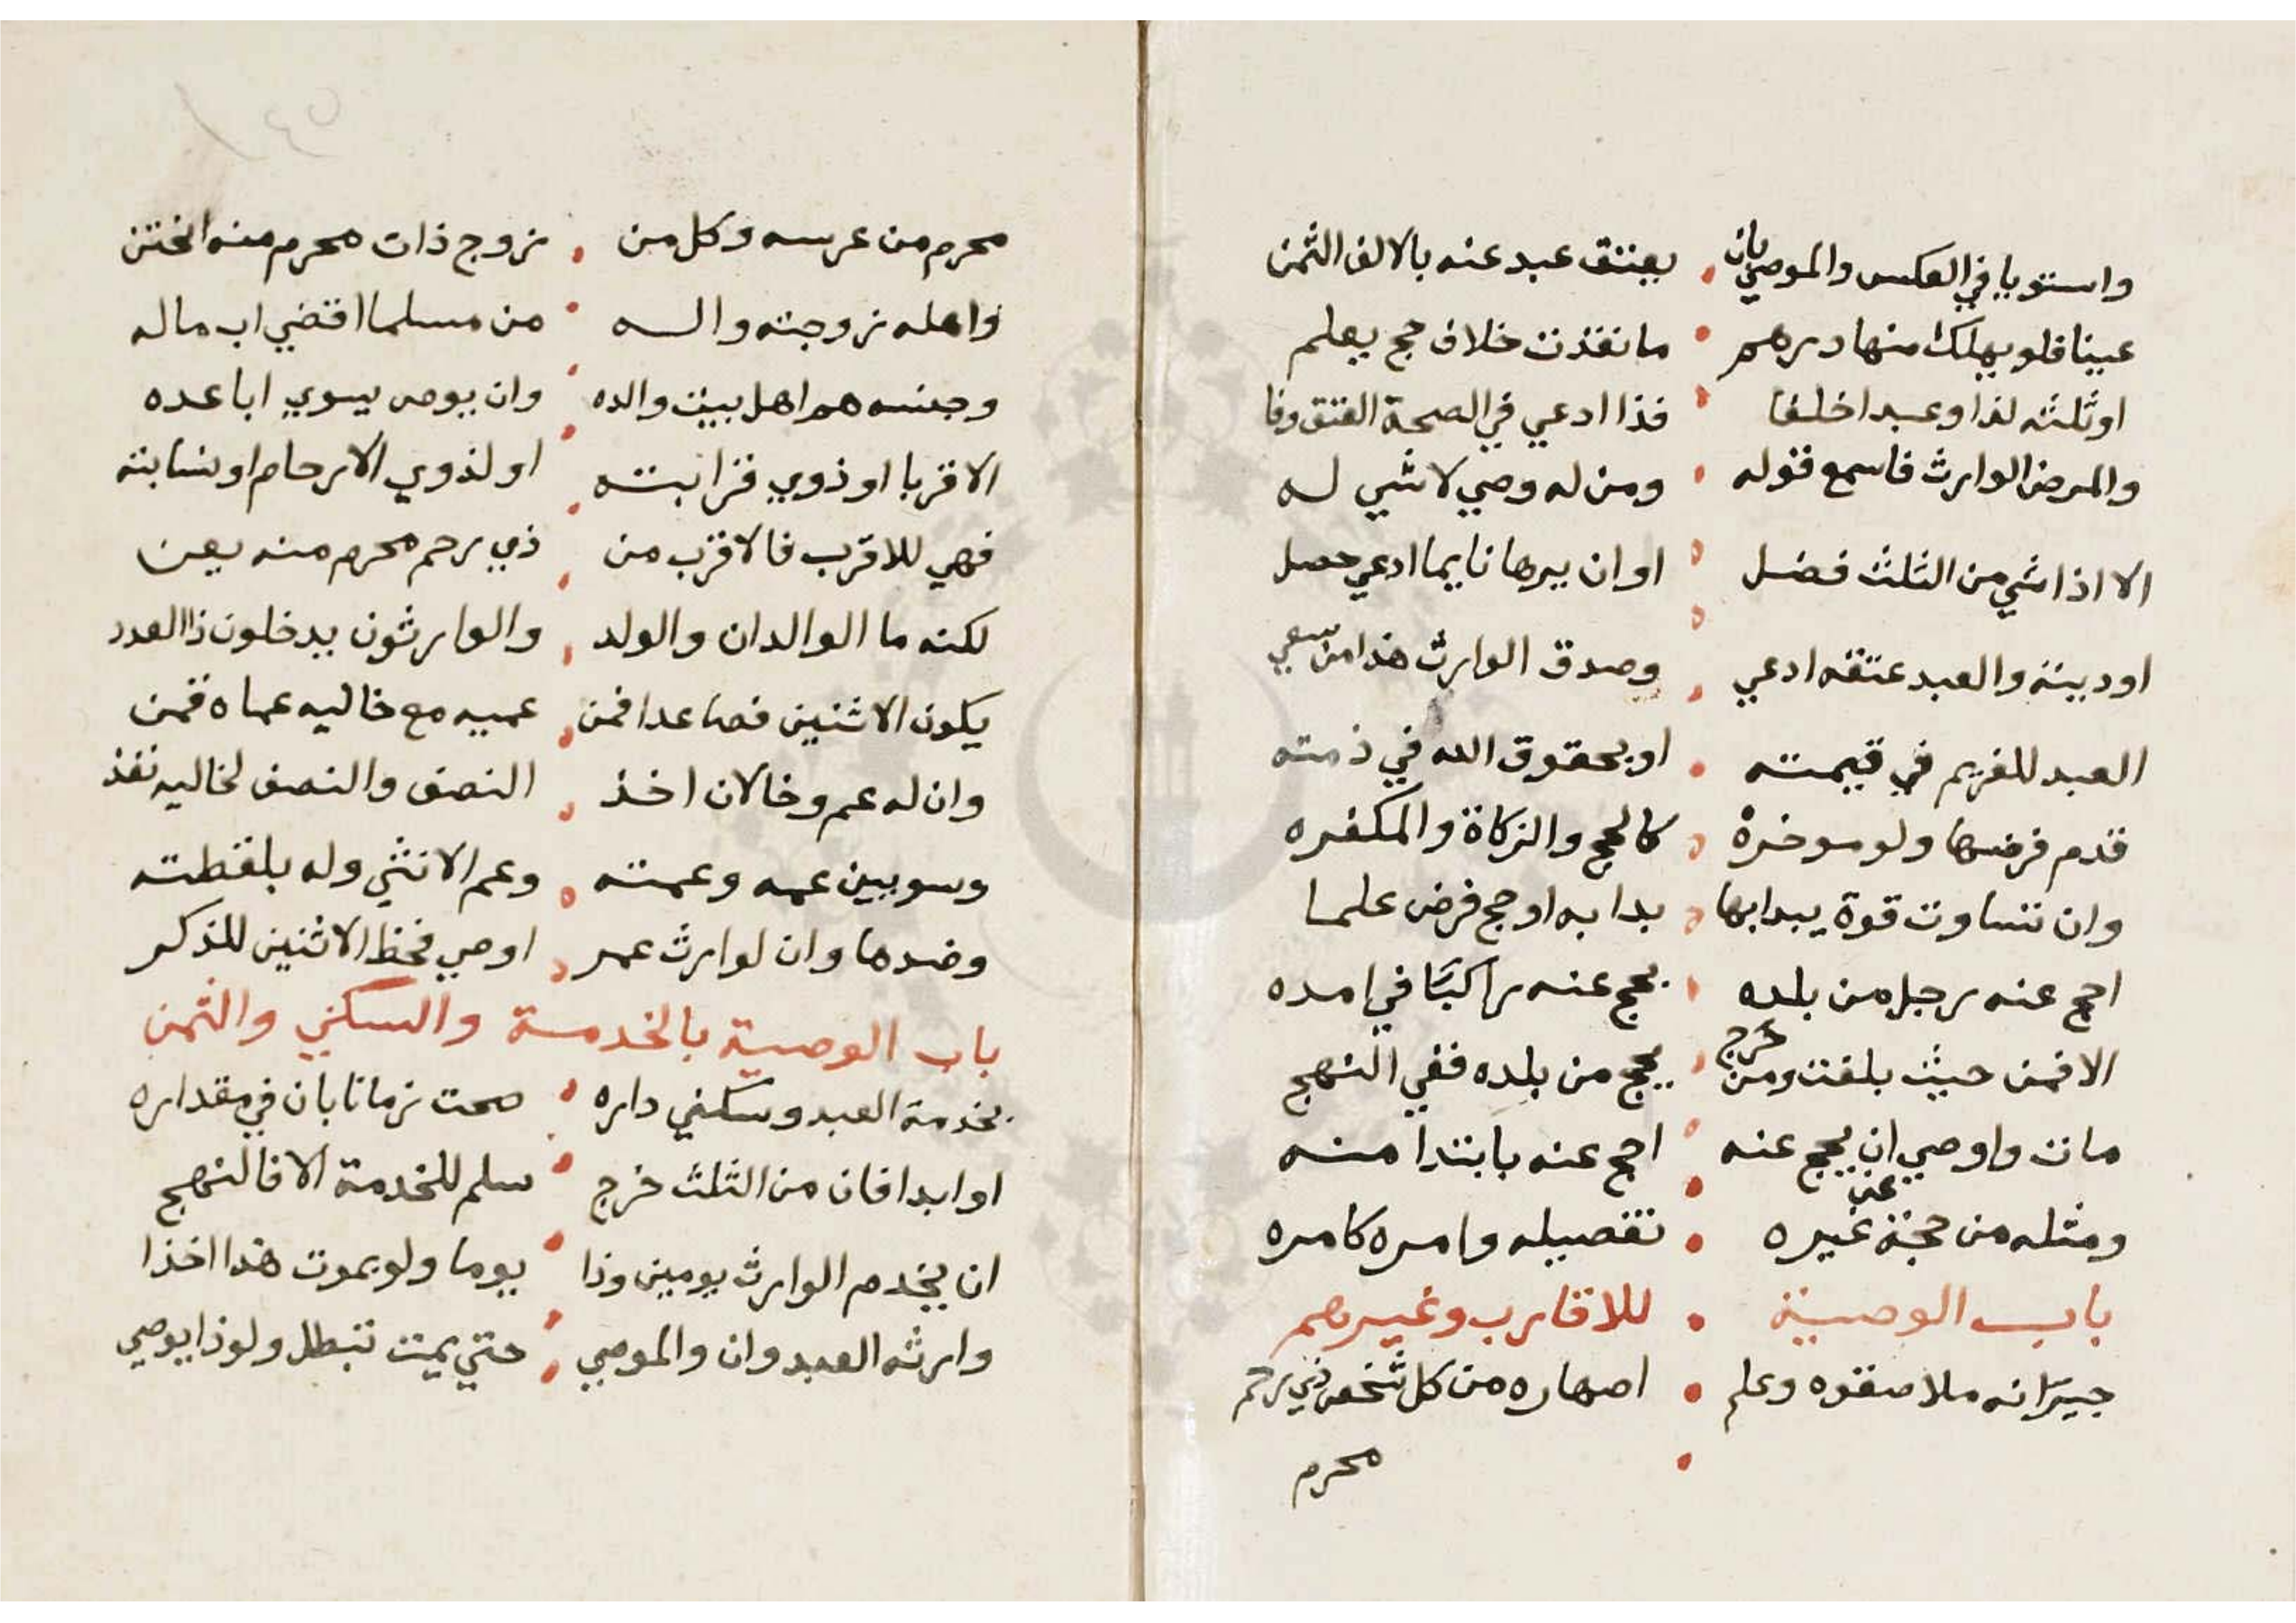 واستويا في العكس والموصي بان يعتق عبد عنه بالالف الثمن
عينا فلو يهلك منها درهم ما نفذت خلاف حج يعلم
او ثلثه لذا وعبدا خلفا فذا ادعي في الصحة العتق وفا
والمرض الوارث فاسمع قوله ومن له وصي لا شي له
الا اذا شي من الثلث فضل او ان يبرها نا يما ادعي حصل
او دينة والعبد عتقه ادعي وصدق الوارث هذا من سعي
العبد للغريم في قيمته او بحقوق الله في ذمته
قدم فرضها ولو موخرة كالحج والزكاة والمكفره
وان تساوت قوة يبدا بها بدا به او حج فرض علما
احج عنه رجل من بلده يحج عنه راكبا في امده
الا فمن حيث بلغت ومن خرج يحج من بلده ففي النهج
مات واوصي ان يحج عنه احج عنه بابتدا منه
ومثله من حجة عن غيره تفصيله وامره كامره
باب الوصية للاقارب وغيرهم
جيرانه ملاصقوه وعلم اصهاره من كل شخص ذي رحم
محرم
محرم من عرسه وكل من زوج ذات محرم منه الختن
واهله زوجته واله من مسلما اقضي اب ماله
وجنسه هم اهل بيت والده وان يوص يسوي ابا عده
الاقربا او ذوي قرابته او لذوي الارحام او نسابته
فهي للاقرب فالاقرب من ذي رحم محرم منه يعن
لكنه ما الوالدان والولد والوارثون يدخلون ذا العدد
يكون الاثنين فصاعدا فمن عميه مع خاليه عماه قمن
وان له عم وخالان اخذ النصف والنصف لخاليه نفذ
وسو بين عمه وعمته وعم الانثي وله بلفظته
وضدها وان لوارث عمر اوصي فحظ الاثنين للذكر
باب الوصية بالخدمة والسكني والثمن
بخدمة العبد وسكني داره صحت زمانا بان في مقداره
او ابدا فان من الثلث خرج سلم للخدمة الا فالنهج
ان يخدم الوارث يومين وذا يوما ولو يموت هذا اخذا
وارثه العبد وان والموصي حتي يمت تبطل ولو ذا يوصي